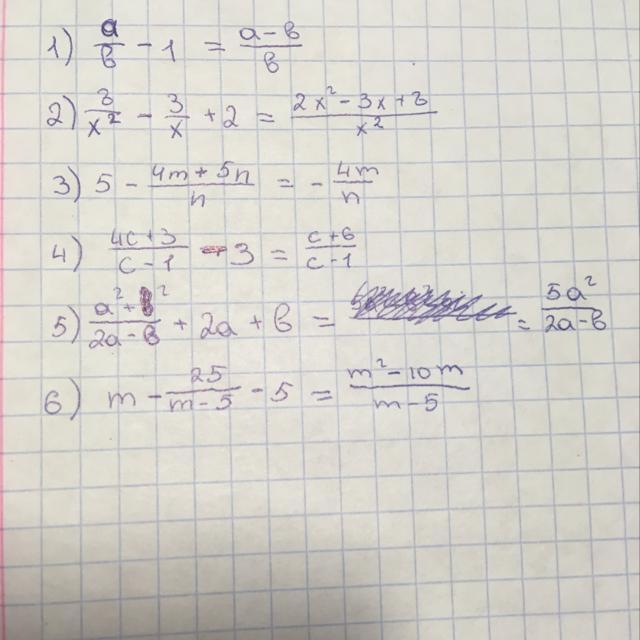 1) a/в - 1 = (a-в)/в
2) 3/x² - 3/x + 2 = (2x² - 3x + 3)/x²
3) 5 - (4m + 5n)/n = - 4m/n
4) (4c+3)/(c-1) - 3 = (c+6)/(c-1)
5) (a² + в²)/(2a - в) + 2a + в = = 5a²/(2a-в)
6) m - 25/(m-5) - 5 = (m² - 10m)/(m-5)